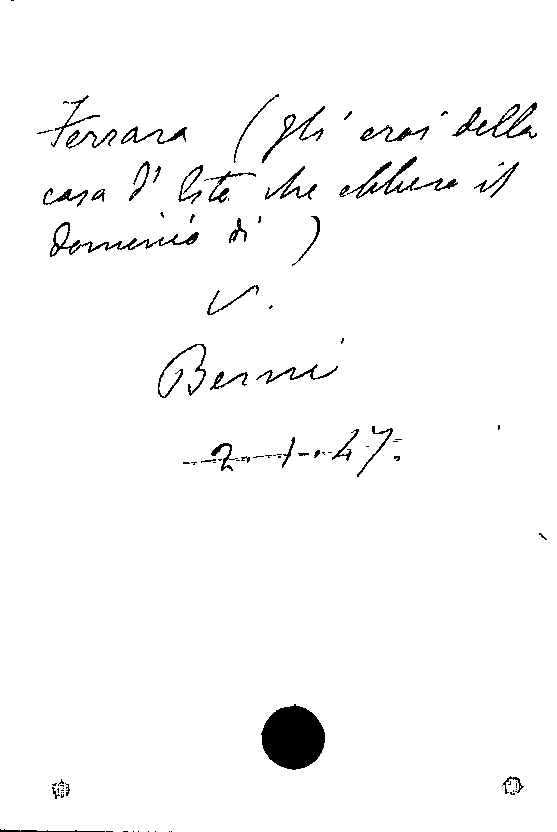 Ferrara (gli eroi della
casa d'Este che ebbero il
dominio di)
V.
Berni
2.1.47.